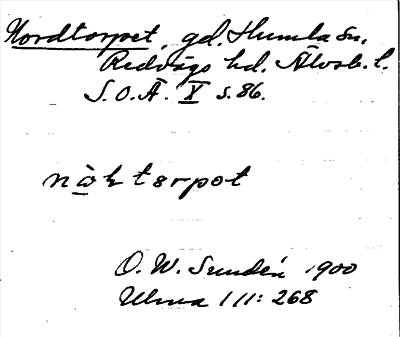 Nordtorpet, gd. Humla sn.
Redvägs hd. Älvsb. l.
S.O.Ä. X s. 86.
O. W. Sundén 1900
Ulma 111: 268